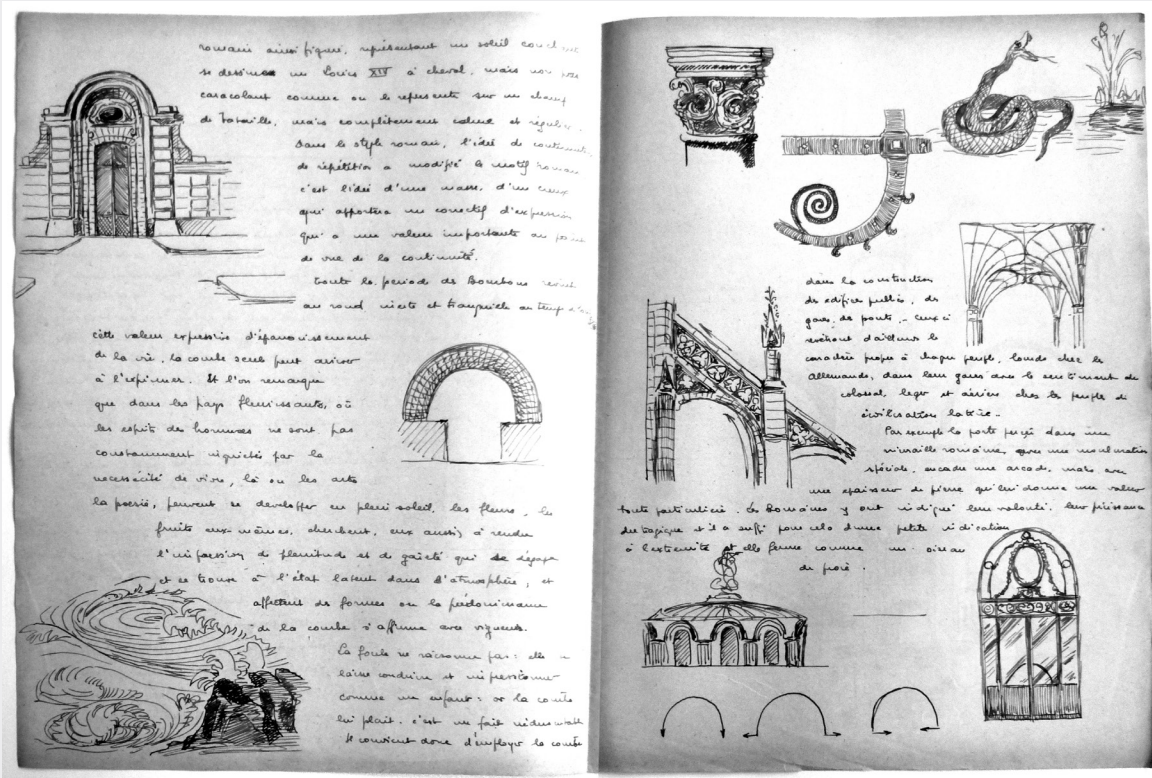 romain ainsi figuré, représentant un soleil
se dessiner un Louis XIV à cheval, mais non pas
caracolant comme on le représente sur un champ
de bataille, mais complètement calme et régulier.
Dans le style roman, l'idée de
de répétition a modifié le motif roman
c'est l'idée d'une masse, d'un creux
qui apportera un correctif d'expression
qui a une valeur importante au point
de vue de la continuité.
toute la période des Bourbons
au rond
cette valeur expressive d'épanouissement
de la vie, la courbe seule peut arriver
à l'exprimer. Et l'on remarque
que dans les pays fleurissants, où
les esprits des hommes ne sont pas
constamment inquiétés par la
necessécité de vivre, là ou les arts
la poésie, peuvent se développer en plein soleil, les fleurs, les
fruits eux-mêmes, cherchent, eux aussi, à rendre
l'impression de plénitude et de gaieté qui se dégage
et se trouve à l'état latent dans l'atmosphère, et
affectent des formes ou la prédominance
de la courbe s'affirme avec vigueur.
La foule ne raisonne pas: elle se
laisse conduire et impressionner
comme un enfant: or la courbe
lui plaît. c'est un fait
Il convient donc d'employer la courbe
dans la construction
des édifices publics, des
gares, des ponts, - ceux ci
revêtent d'ailleurs le
caractère propre à chaque peuple, lourds chez les
Allemands, dans leurs gares avec le sentiment de
colossal, léger et aérien chez les peuples de
civilisation latine.
Par exemple la porte percée dans une
muraille romaine, avec une
spéciale, encadre une arcade, mais avec
une épaisseur de pierre qui lui donne une valeur
toute particulière. Les Romains y ont indiqué leur volonté, leur puissance
et il a suffi pour cela d'une petite indication
à l'extrémité et elle ferme comme un oiseau
de proie.